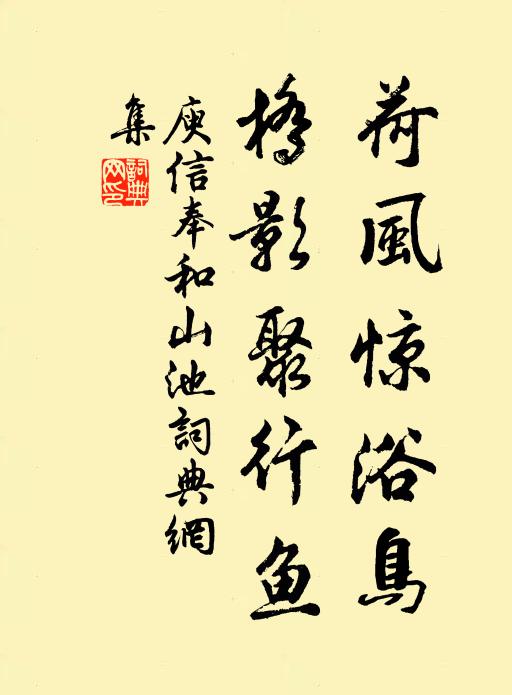 荷風惊浴鳥
橋影聚行鱼
庾信奉和山池詞典網
集
詞典網印